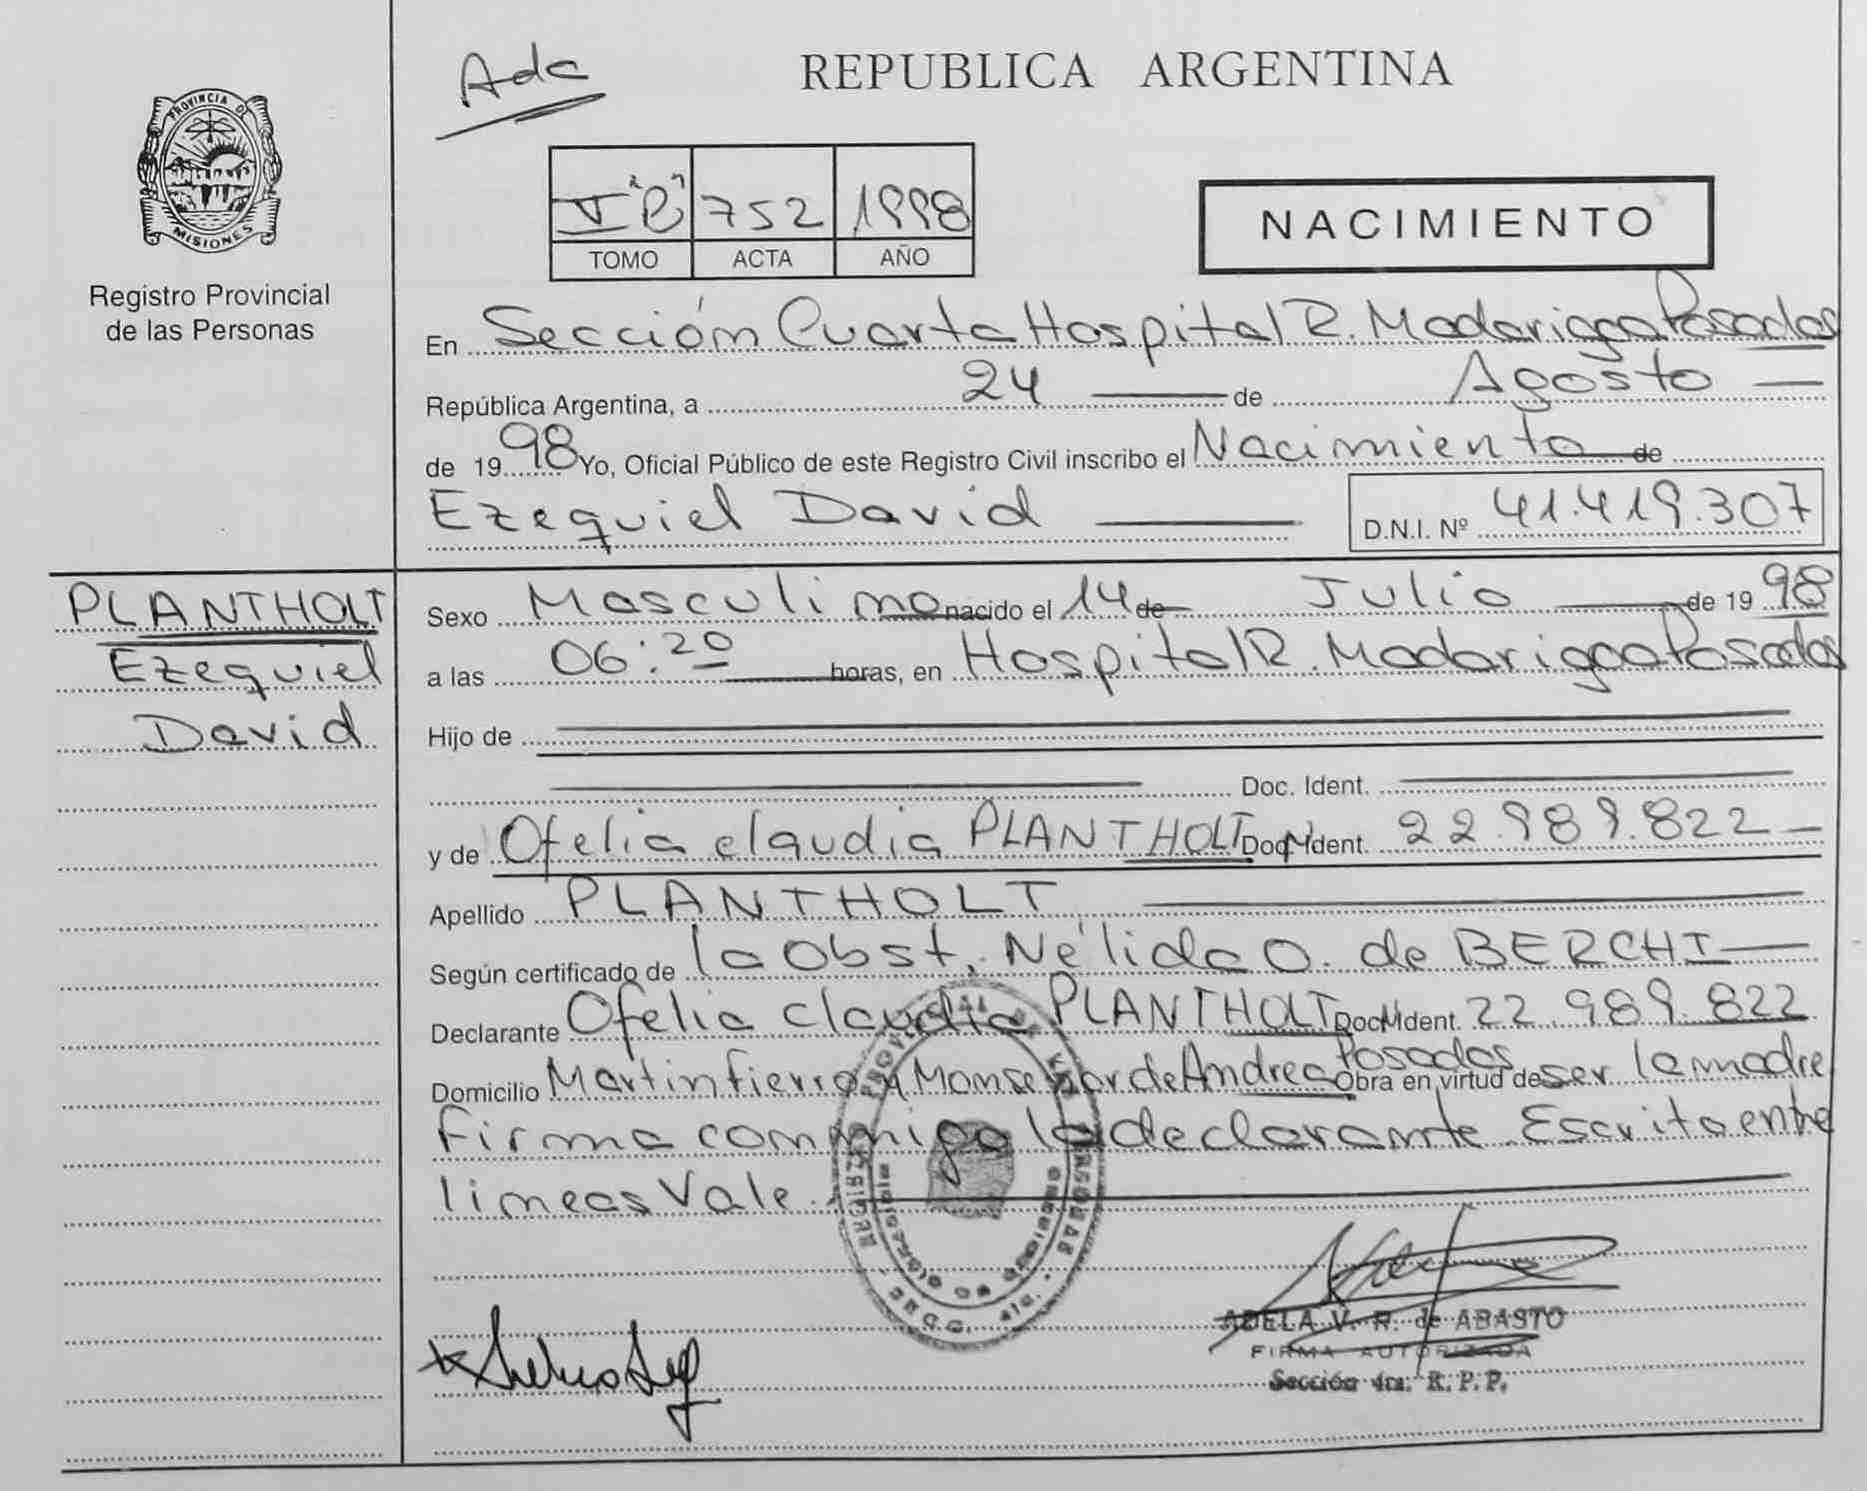 Ada
REPUBLICA ARGENTINA
PROVINCIA DE
MISIONES
Registro Provincial
de las Personas
V "B" 752 1998
TOMO ACTA AÑO
NACIMIENTO
En Sección Cuarta Hospital R. Madariaga Posadas
República Argentina, a 24 de Agosto
de 1998 Yo, Oficial Público de este Registro Civil inscribo el Nacimiento de
Ezequiel David D.N.I. Nº 41.419.307
PLANTHOLT
Ezequiel
David
Sexo Masculino nacido el 14 de Julio de 1998
a las 06:20 horas, en Hospital R. Madariaga Posadas
Hijo de
Doc. Ident.
y de Ofelia claudia PLANTHOLT Doc. Ident. 22.989.822
Apellido PLANTHOLT
Según certificado de la Obst. Nélida O. de BERCHI
Declarante Ofelia Claudia PLANTHOLT Doc. Ident. 22.989.822
Posadas
Domicilio Martin fierro y Monseñor de Andrea Obra en virtud de ser la madre
Firma conmigo la declarante Escrito entre
lineas Vale.
ADELA V. R. de ABASTO
FIRMA AUTORIZADA
Sección 4ta. R. P. P.